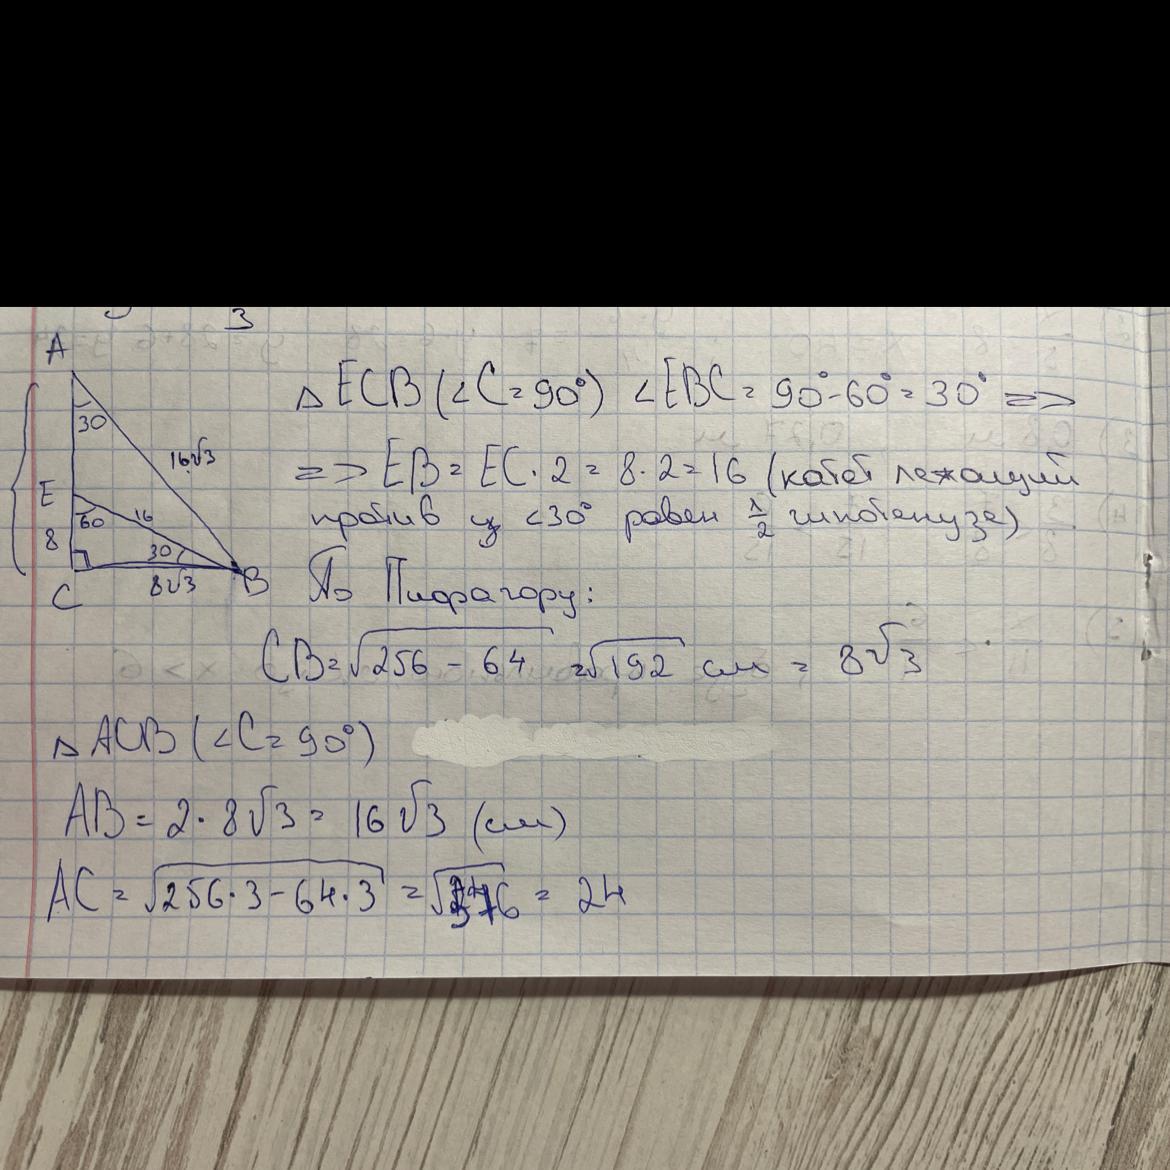 3
A
30
16√3
E
60
16
8
30
C
8√3
B
△ ECB (<C = 90°) <EBC = 90° - 60° = 30° =>
=> EB = EC · 2 = 8 · 2 = 16 (катет лежащий
против <30° равен 1/2 гипотенузе)
По Пифагору:
CB = √256 - 64 = √192 см = 8√3
△ ACB (<C = 90°)
AB = 2 · 8√3 = 16√3 (см)
AC = √256·3 - 64·3 = = 24